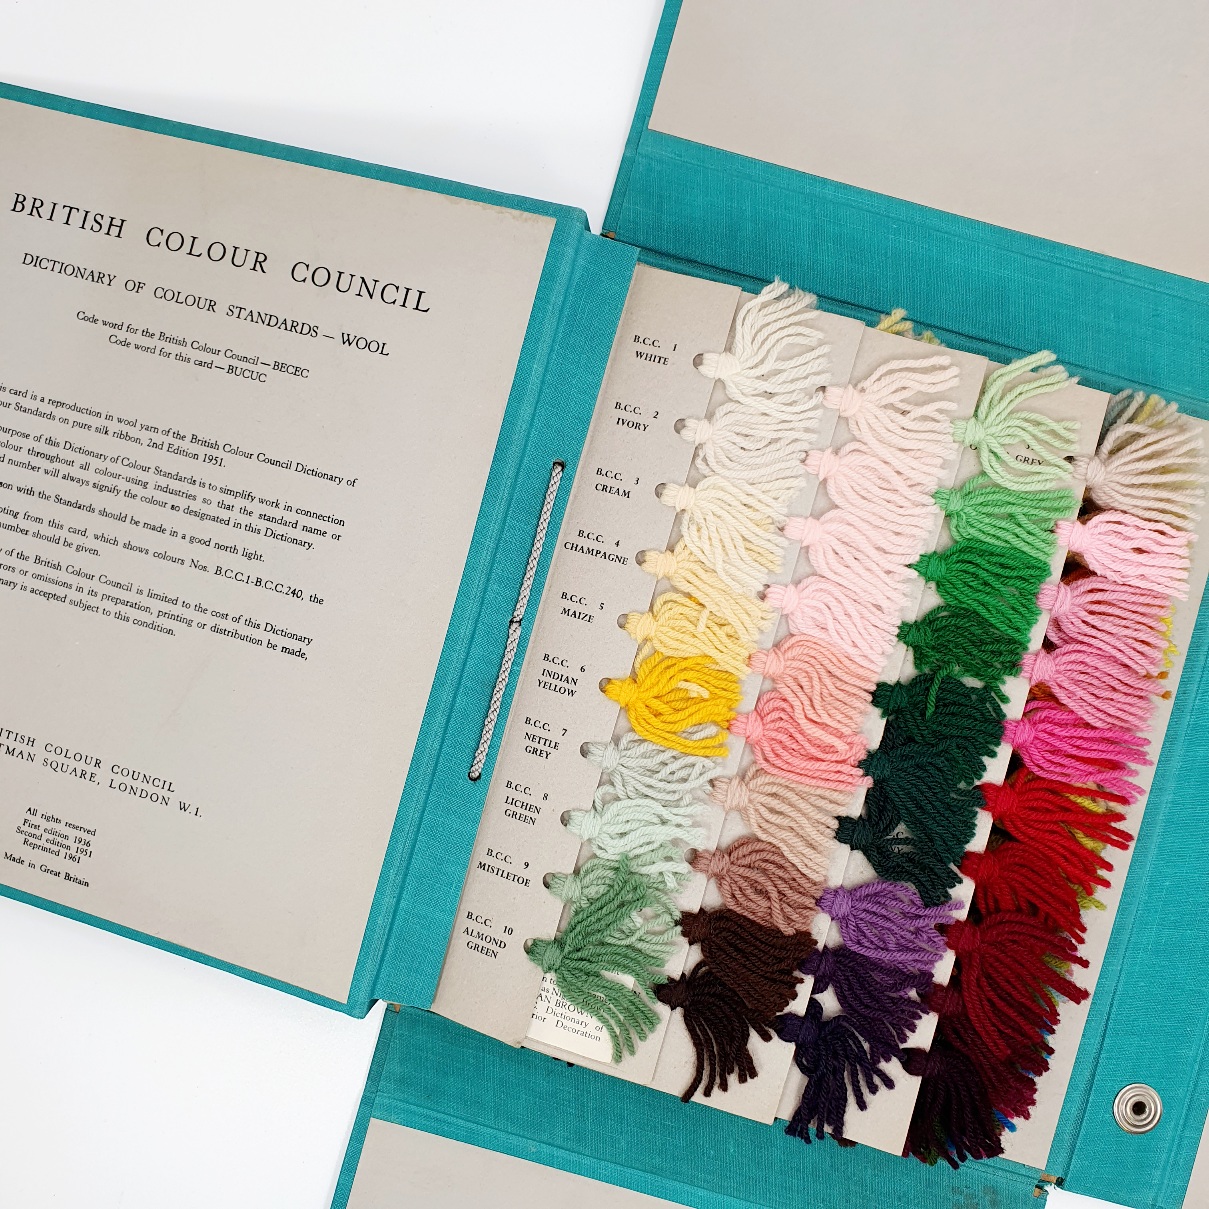 BRITISH COLOUR COUNCIL
DICTIONARY OF COLOUR STANDARDS — WOOL
Code word for the British Colour Council — BECEC
Code word for this card — BUCUC
is card is a reproduction in wool yarn of the British Colour Council Dictionary of
our Standards on pure silk ribbon, 2nd Edition 1951.
urpose of this Dictionary of Colour Standards is to simplify work in connection
olour throughout all colour-using industries so that the standard name or
d number will always signify the colour so designated in this Dictionary.
son with the Standards should be made in a good north light.
oting from this card, which shows colours Nos. B.C.C.1-B.C.C.240, the
number should be given.
y of the British Colour Council is limited to the cost of this Dictionary
rors or omissions in its preparation, printing or distribution be made,
nary is accepted subject to this condition.
ITISH COLOUR COUNCIL
TMAN SQUARE, LONDON W.1.
All rights reserved
First edition 1936
Second edition 1951
Reprinted 1961
Made in Great Britain
B.C.C. 1
WHITE
B.C.C. 2
IVORY
B.C.C. 3
CREAM
B.C.C. 4
CHAMPAGNE
B.C.C. 5
MAIZE
B.C.C. 6
INDIAN
YELLOW
B.C.C. 7
NETTLE
GREY
B.C.C. 8
LICHEN
GREEN
B.C.C. 9
MISTLETOE
B.C.C. 10
ALMOND
GREEN
AN BROWN
Dictionary of
rior Decoration
GREY